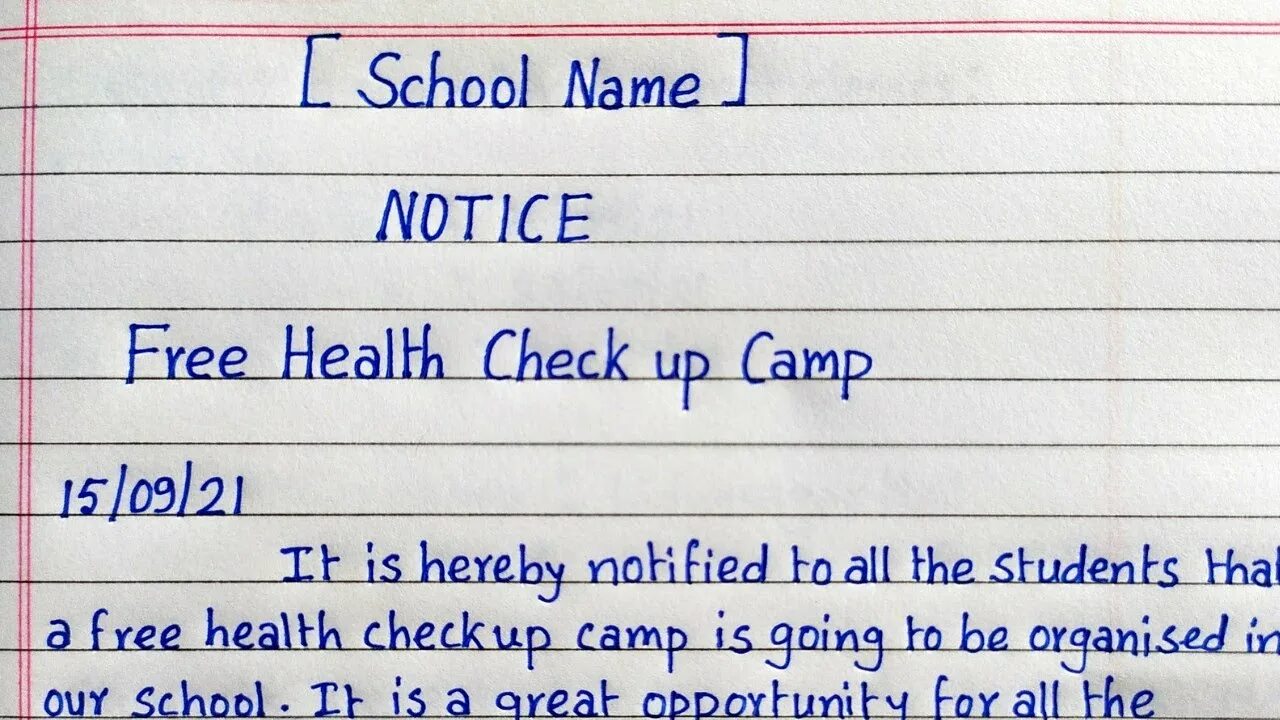 [ School Name ]
NOTICE
Free Health Check up Camp
15/09/21
It is hereby notified to all the students that
a free health checkup camp is going to be organised in
our school. It is a great opportunity for all the